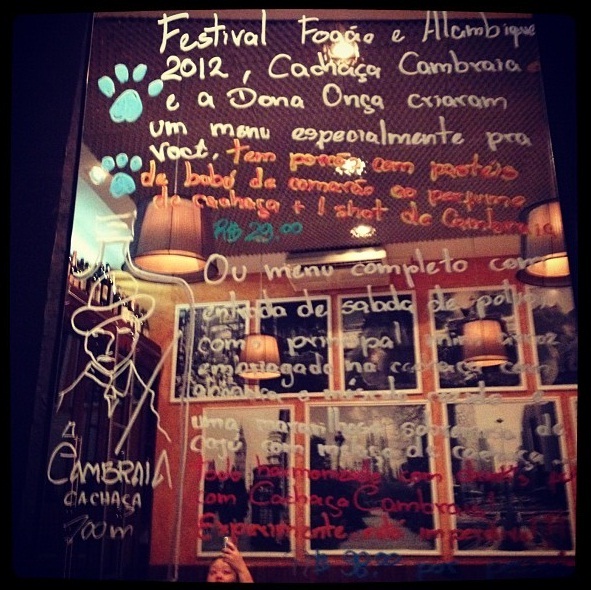 Festival Fogão e Alambique
2012, Cachaça Cambraia
e a Dona Onça criaram
um menu especialmente pra
você. tem porção com pastéis
de bobó de camarão ao perfume
de cachaça + 1 shot de Cambraia
R$ 29.00
Ou menu completo com
entrada de salada de polvo,
como principal mini arroz
embriagado na cachaça com
e
uma maravilhosa sobremesa de
caju com melaço de cachaça.
harmonizado com
com Cachaça Cambraia
Experimente
R$ 98.00 por
CAMBRAIA
CACHAÇA
700ml